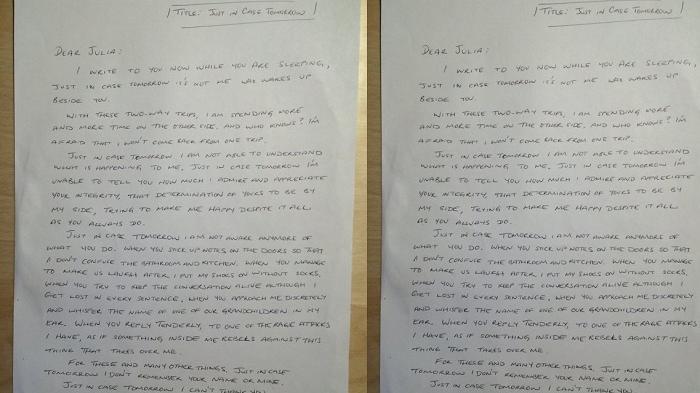 TITLE: JUST IN CASE TOMORROW
DEAR JULIA:
I WRITE TO YOU NOW WHILE YOU ARE SLEEPING,
JUST IN CASE TOMORROW IT'S NOT ME WHO WAKES UP
BESIDE YOU.
WITH THESE TWO-WAY TRIPS, I AM SPENDING MORE
AND MORE TIME ON THE OTHER SIDE. AND WHO KNOWS? I'M
AFRAID THAT I WON'T COME BACK FROM ONE TRIP.
JUST IN CASE TOMORROW I AM NOT ABLE TO UNDERSTAND
WHAT IS HAPPENING TO ME. JUST IN CASE TOMORROW I'M
UNABLE TO TELL YOU HOW MUCH I ADMIRE AND APPRECIATE
YOUR INTEGRITY, THAT DETERMINATION OF YOURS TO BE BY
MY SIDE, TRYING TO MAKE ME HAPPY DESPITE IT ALL
AS YOU ALWAYS DO.
JUST IN CASE TOMORROW I AM NOT AWARE ANYMORE OF
WHAT YOU DO. WHEN YOU STICK UP NOTES ON THE DOORS SO THAT
I DON'T CONFUSE THE BATHROOM AND KITCHEN. WHEN YOU MANAGE
TO MAKE US LAUGH AFTER I PUT MY SHOES ON WITHOUT SOCKS.
WHEN YOU TRY TO KEEP THE CONVERSATION ALIVE ALTHOUGH I
GET LOST IN EVERY SENTENCE, WHEN YOU APPROACH ME DISCRETELY
AND WHISPER THE NAME OF ONE OF OUR GRANDCHILDREN IN MY
EAR. WHEN YOU REPLY TENDERLY, TO ONE OF THE RAGE ATTACKS
I HAVE, AS IF SOMETHING INSIDE ME REBELS AGAINST THIS
THING THAT TAKES OVER ME.
FOR THESE AND MANY OTHER THINGS. JUST IN CASE
TOMORROW I DON'T REMEMBER YOUR NAME OR MINE.
JUST IN CASE TOMORROW I CAN'T THANK YOU
TITLE: JUST IN CASE TOMORROW
DEAR JULIA:
I WRITE TO YOU NOW WHILE YOU ARE SLEEPING,
JUST IN CASE TOMORROW IT'S NOT ME WHO WAKES UP
BESIDE YOU.
WITH THESE TWO-WAY TRIPS, I AM SPENDING MORE
AND MORE TIME ON THE OTHER SIDE. AND WHO KNOWS? I'M
AFRAID THAT I WON'T COME BACK FROM ONE TRIP.
JUST IN CASE TOMORROW I AM NOT ABLE TO UNDERSTAND
WHAT IS HAPPENING TO ME. JUST IN CASE TOMORROW I'M
UNABLE TO TELL YOU HOW MUCH I ADMIRE AND APPRECIATE
YOUR INTEGRITY, THAT DETERMINATION OF YOURS TO BE BY
MY SIDE, TRYING TO MAKE ME HAPPY DESPITE IT ALL
AS YOU ALWAYS DO.
JUST IN CASE TOMORROW I AM NOT AWARE ANYMORE OF
WHAT YOU DO. WHEN YOU STICK UP NOTES ON THE DOORS SO THAT
I DON'T CONFUSE THE BATHROOM AND KITCHEN. WHEN YOU MANAGE
TO MAKE US LAUGH AFTER I PUT MY SHOES ON WITHOUT SOCKS.
WHEN YOU TRY TO KEEP THE CONVERSATION ALIVE ALTHOUGH I
GET LOST IN EVERY SENTENCE, WHEN YOU APPROACH ME DISCRETELY
AND WHISPER THE NAME OF ONE OF OUR GRANDCHILDREN IN MY
EAR. WHEN YOU REPLY TENDERLY, TO ONE OF THE RAGE ATTACKS
I HAVE, AS IF SOMETHING INSIDE ME REBELS AGAINST THIS
THING THAT TAKES OVER ME.
FOR THESE AND MANY OTHER THINGS. JUST IN CASE
TOMORROW I DON'T REMEMBER YOUR NAME OR MINE.
JUST IN CASE TOMORROW I CAN'T THANK YOU